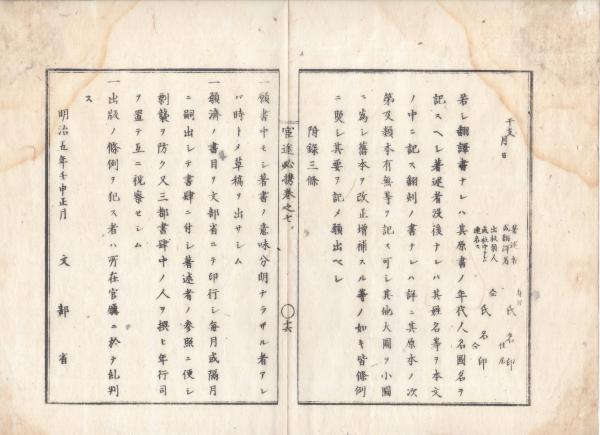 干支
月日
著述者
或翻譯者
出板願人
或社中ナレハ
連名ス
住居
氏名印
仝
仝
氏名印
若シ翻譯書ナレハ其原書ノ年代人名國名ヲ
記スヘシ著述者沒後ナレハ其姓名等ヲ本文
ノ中ニ記ス翻刻ノ書ナレハ詳ニ其原本ノ次
第及類本有無等ヲ記ス可シ其他大圖ヲ小圖
ニ為シ舊本ヲ改正增補スル等ノ如キ皆條例
ニ照シ其要ヲ記メ願出ベシ
附錄三條
官途必携巻之七
一願書中モシ著書ノ意味分明ナラザル者アレ
バ時トメ草稿ヲ出サシム
一願濟ノ書目ヲ文部省ニテ印行シ每月或隔月
ニ嗣出シテ書肆ニ付シ著述者ノ參照ニ便シ
剽襲ヲ防ク又三都書肆中ノ人ヲ撰ヒ年行司
ヲ置テ互ニ視察セシム
一出版ノ條例ヲ犯ス者ハ所在官廳ニ於テ乱判
ス
明治五年壬申正月
文部省